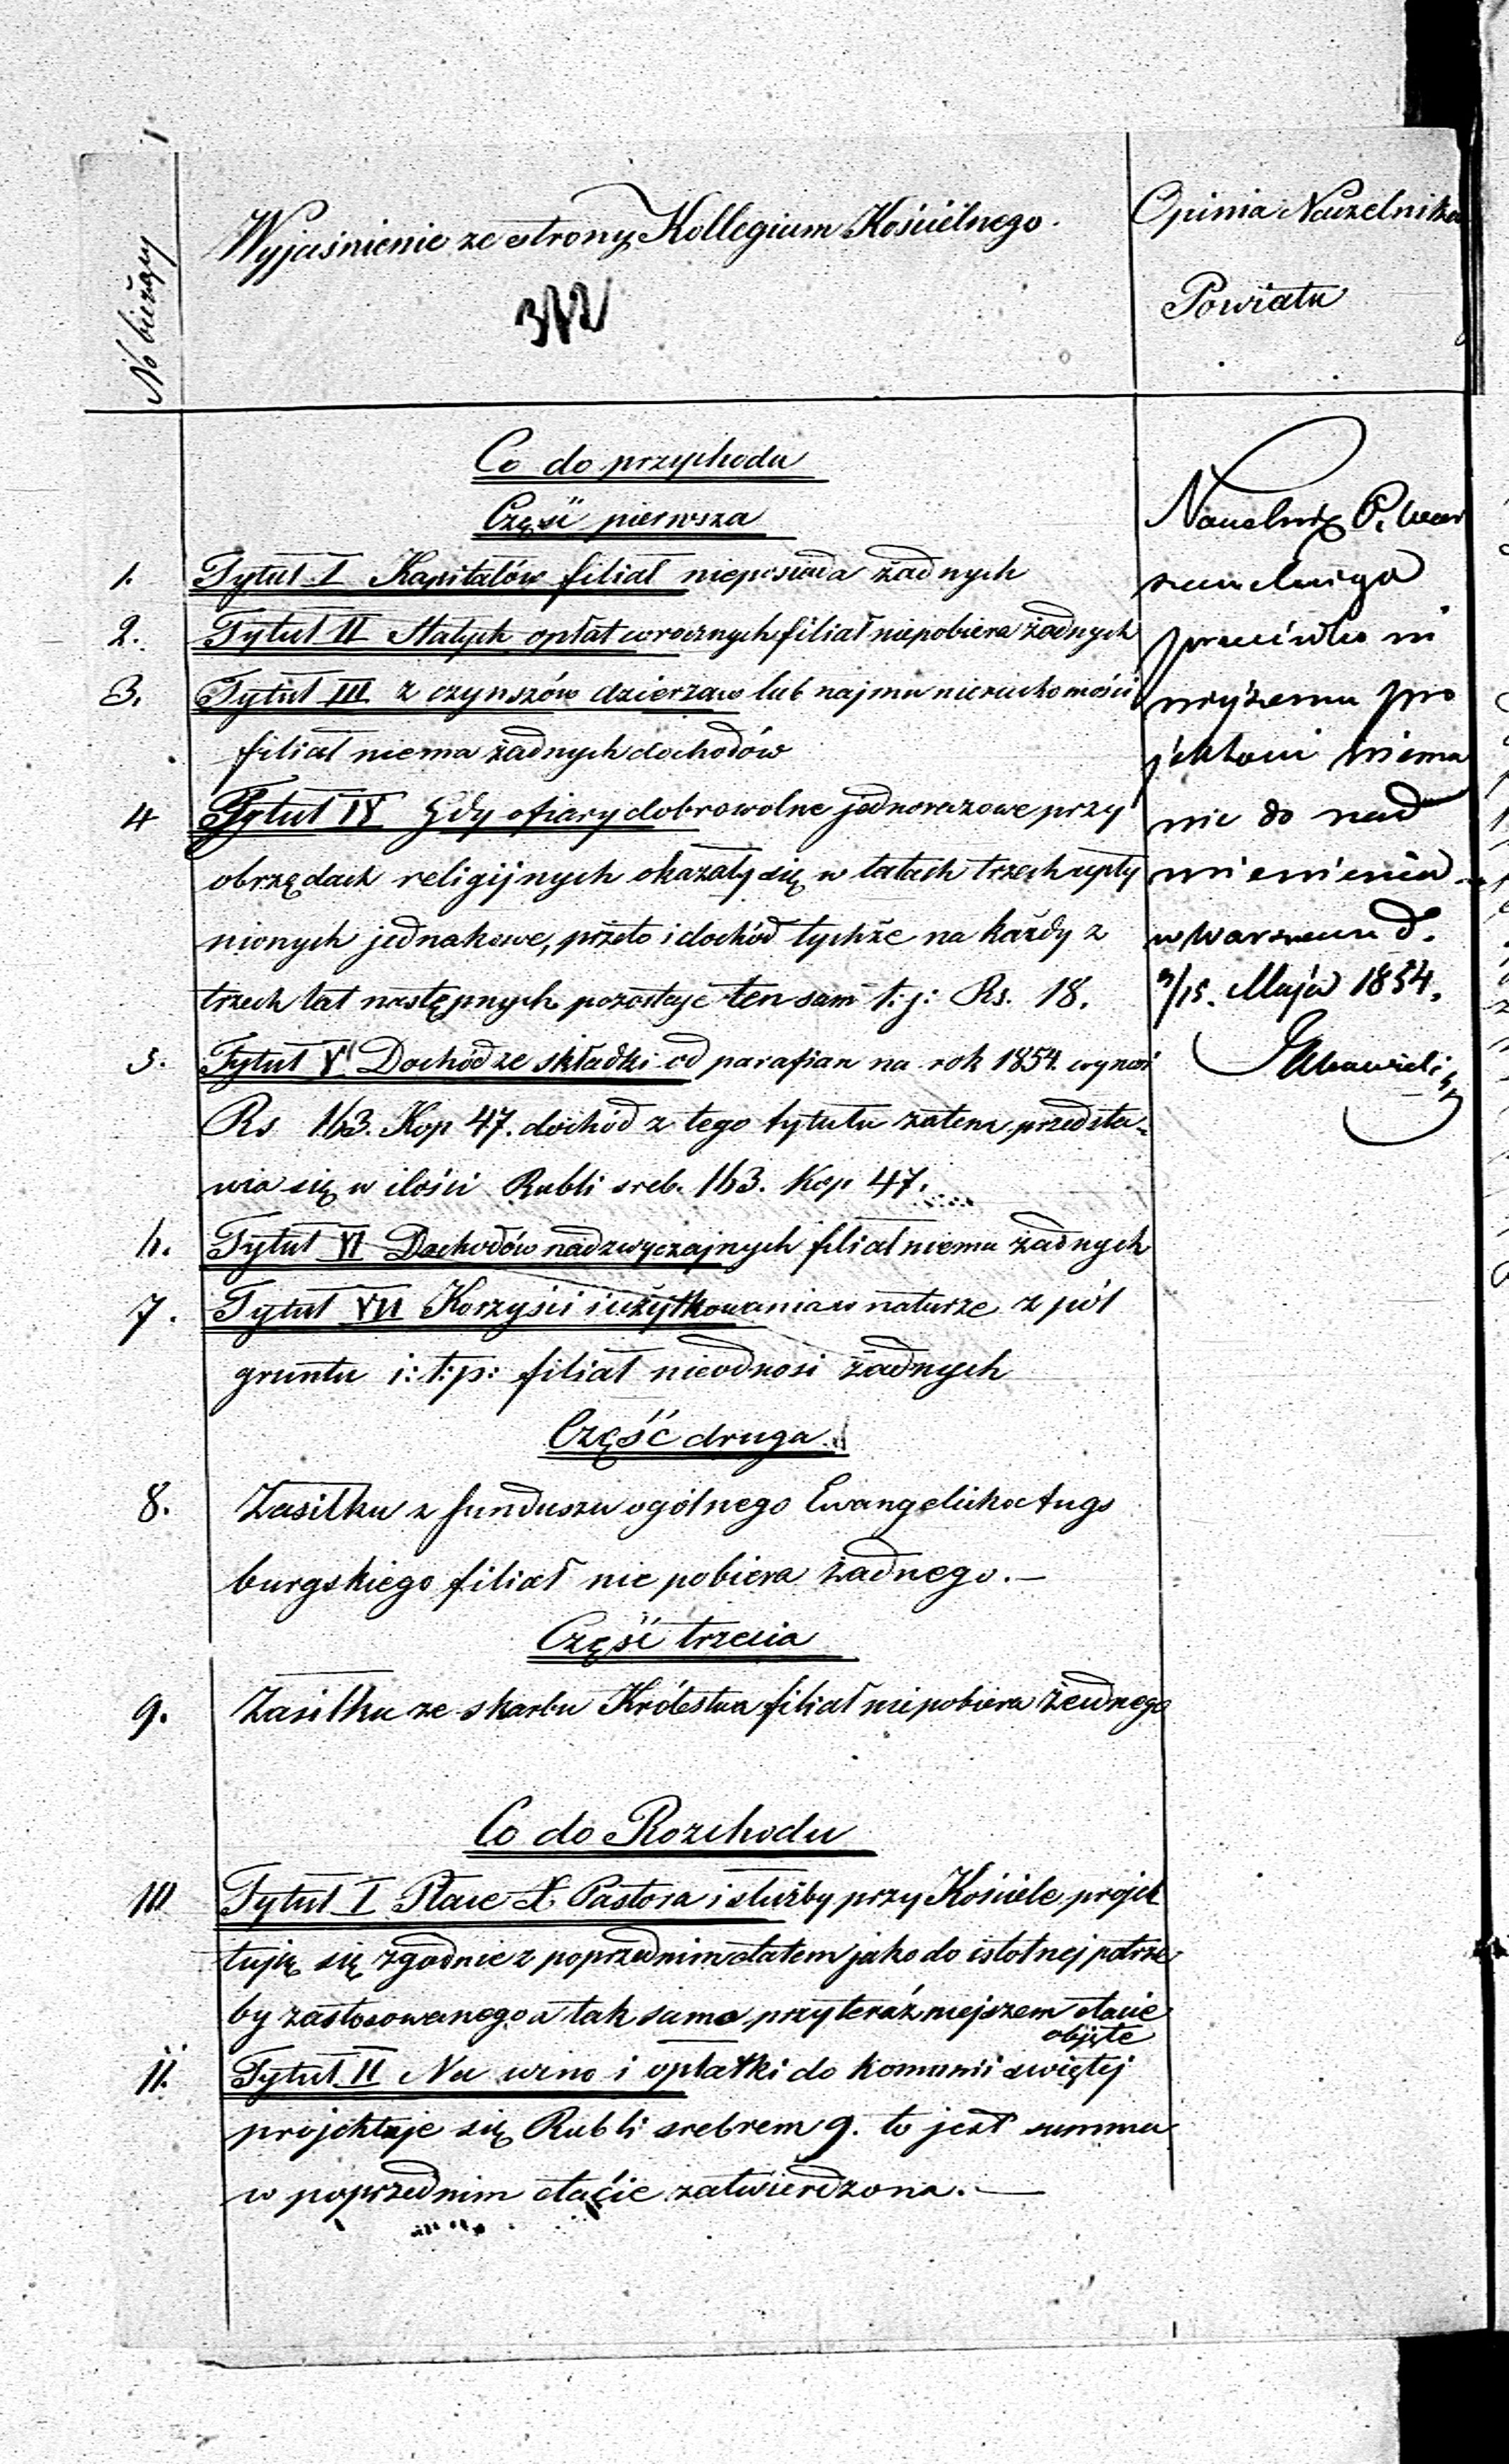 No bieżący
Wyjaśnienie ze strony Kollegium Kościelnego.
Opinia Naczelnika
Powiatu
Co do przychodu
Część pierwsza
1. Tytuł I Kapitałów filiał nieposiada żadnych
2. Tytuł II Stałych opłat corocznych filiał niepobiera żadnych
3. Tytuł III z czynszów dzierzaw lub najmu nieruchomości
filiał niema żadnych dochodów
4 Tytuł IV Gdy ofiary dobrowolne jednorazowe przy
obrzędach religijnych okazały się w latach trzech upły
nionych jednakowe, przeto i dochód tychże na każdy z
trzech lat następnych pozostaje ten sam t: j: Rs. 18.
5. Tytuł V Dochód ze składki od parafian na rok 1854. wynosi
Rs 163. Kop 47. dochód z tego tytułu zatem przedsta-
wia się w ilości Rubli sreb. 163. Kop 47.
6. Tytuł VI Dochodów nadzwyczajnych filiał niema żadnych
7. Tytuł VII Korzyści i użytkowania w naturze z pól
gruntu i: t: p: filiał nieodnosi żadnych
Część druga
8. Zasiłku z funduszu ogólnego Ewangelicko Augs
burgskiego filiał nie pobiera żadnego.—
Część trzecia
9. Zasiłku ze skarbu Królestwa filiał niepobiera żadnego
Co do Rozchodu
10 Tytuł I Płace X. Pastora i służby przy Kościele projek
tuję się zgodnie z poprzednim etatem jako do istotnej potrze-
by zastosowanego a tak samo przy teraźniejszem etacie
objęte
11. Tytuł II Na wino i opłatki do komunii świętej
projektuje się Rubli srebrem 9. to jest summa
w poprzednim etacie zatwierdzona.—
Naczelnik P. War
szawskiego
przeciwko ni
niejszemu pro
jektowi niema
nic do nad
mienienia.
w Warszawie d.
3/15. Maja 1854.